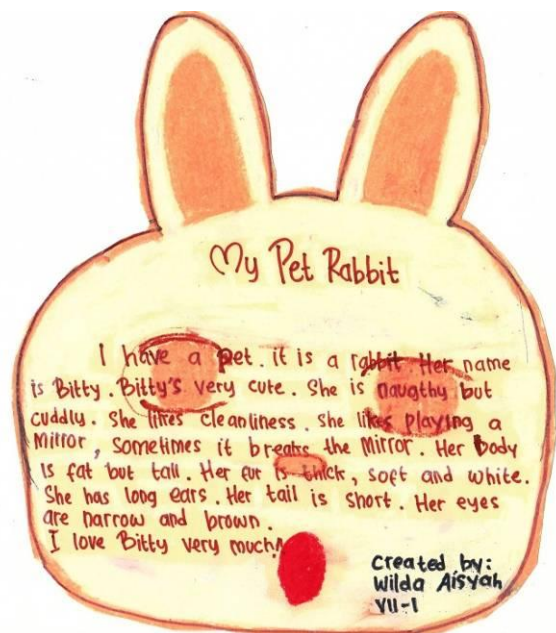 My Pet Rabbit
I have a pet. it is a rabbit. Her name
is Bitty. Bitty's very cute. She is naugthy but
cuddly. She likes cleanliness. She likes playing a
Mirror, sometimes it breaks the Mirror. Her body
is fat but tall. Her fur is thick, soft and white.
She has long ears. Her tail is short. Her eyes
are narrow and brown.
I love Bitty very much!
Created by:
Wilda Aisyah
VII-1